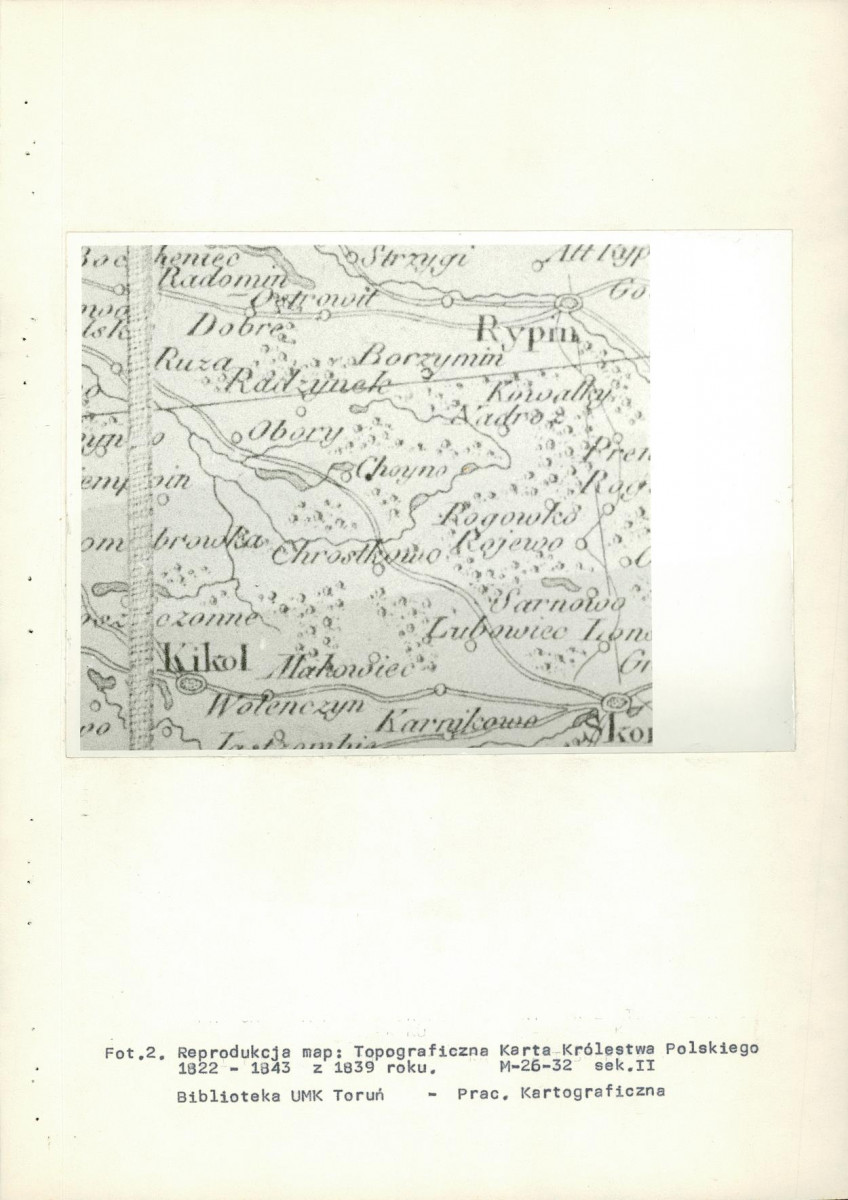 Strzygi
Radomin
Ostrowit
Dobre
Rypin
Ruza
Borzymin
Radzynek
Kowalky
Nadroz
Obory
Choyno
Rogowko
Chrostkowo
Rojewo
Sarnowo
Lubowiec
Kikol
Makowiec
Wolenczyn
Karnikowo
Fot.2. Reprodukcja map: Topograficzna Karta Królestwa Polskiego
1822 - 1843 z 1839 roku. M-26-32 sek.II
Biblioteka UMK Toruń - Prac. Kartograficzna